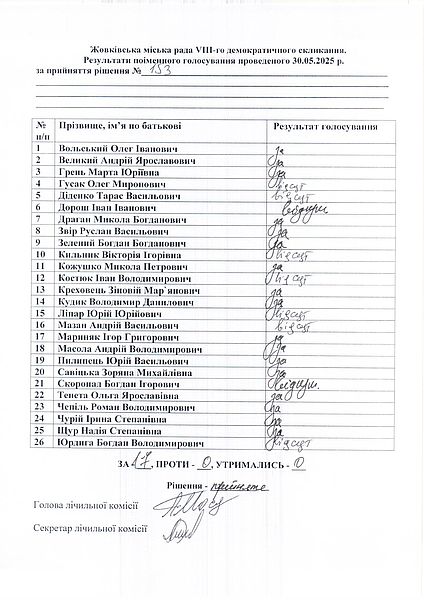 Жовківська міська рада VIII-го демократичного скликання.
Результати поіменного голосування проведеного 30.05.2025 р.
за прийняття рішення № 193
№ п/п Прізвище, ім’я по батькові Результат голосування
1 Вольський Олег Іванович за
2 Великий Андрій Ярославович за
3 Грень Марта Юріївна за
4 Гусак Олег Миронович відсут
5 Діденко Тарас Васильович відсут
6 Дорош Іван Іванович
7 Драган Микола Богданович за
8 Звір Руслан Васильович за
9 Зелений Богдан Богданович за
10 Кильник Вікторія Ігорівна відсут
11 Кожушко Микола Петрович за
12 Костюк Іван Володимирович відсут
13 Креховець Зіновій Мар`янович за
14 Кудик Володимир Данилович за
15 Ліпар Юрій Юрійович відсут
16 Мазан Андрій Васильович відсут
17 Мариняк Ігор Григорович за
18 Масола Андрій Володимирович за
19 Пилипець Юрій Васильович за
20 Савіцька Зоряна Михайлівна за
21 Скоропад Богдан Ігорович
22 Тенета Ольга Ярославівна за
23 Чепіль Роман Володимирович за
24 Чурій Ірина Степанівна за
25 Щур Надія Степанівна за
26 Юрдига Богдан Володимирович відсут
ЗА 17, ПРОТИ - 0, УТРИМАЛИСЬ - 0
Рішення - прийнято
Голова лічильної комісії
Секретар лічильної комісії